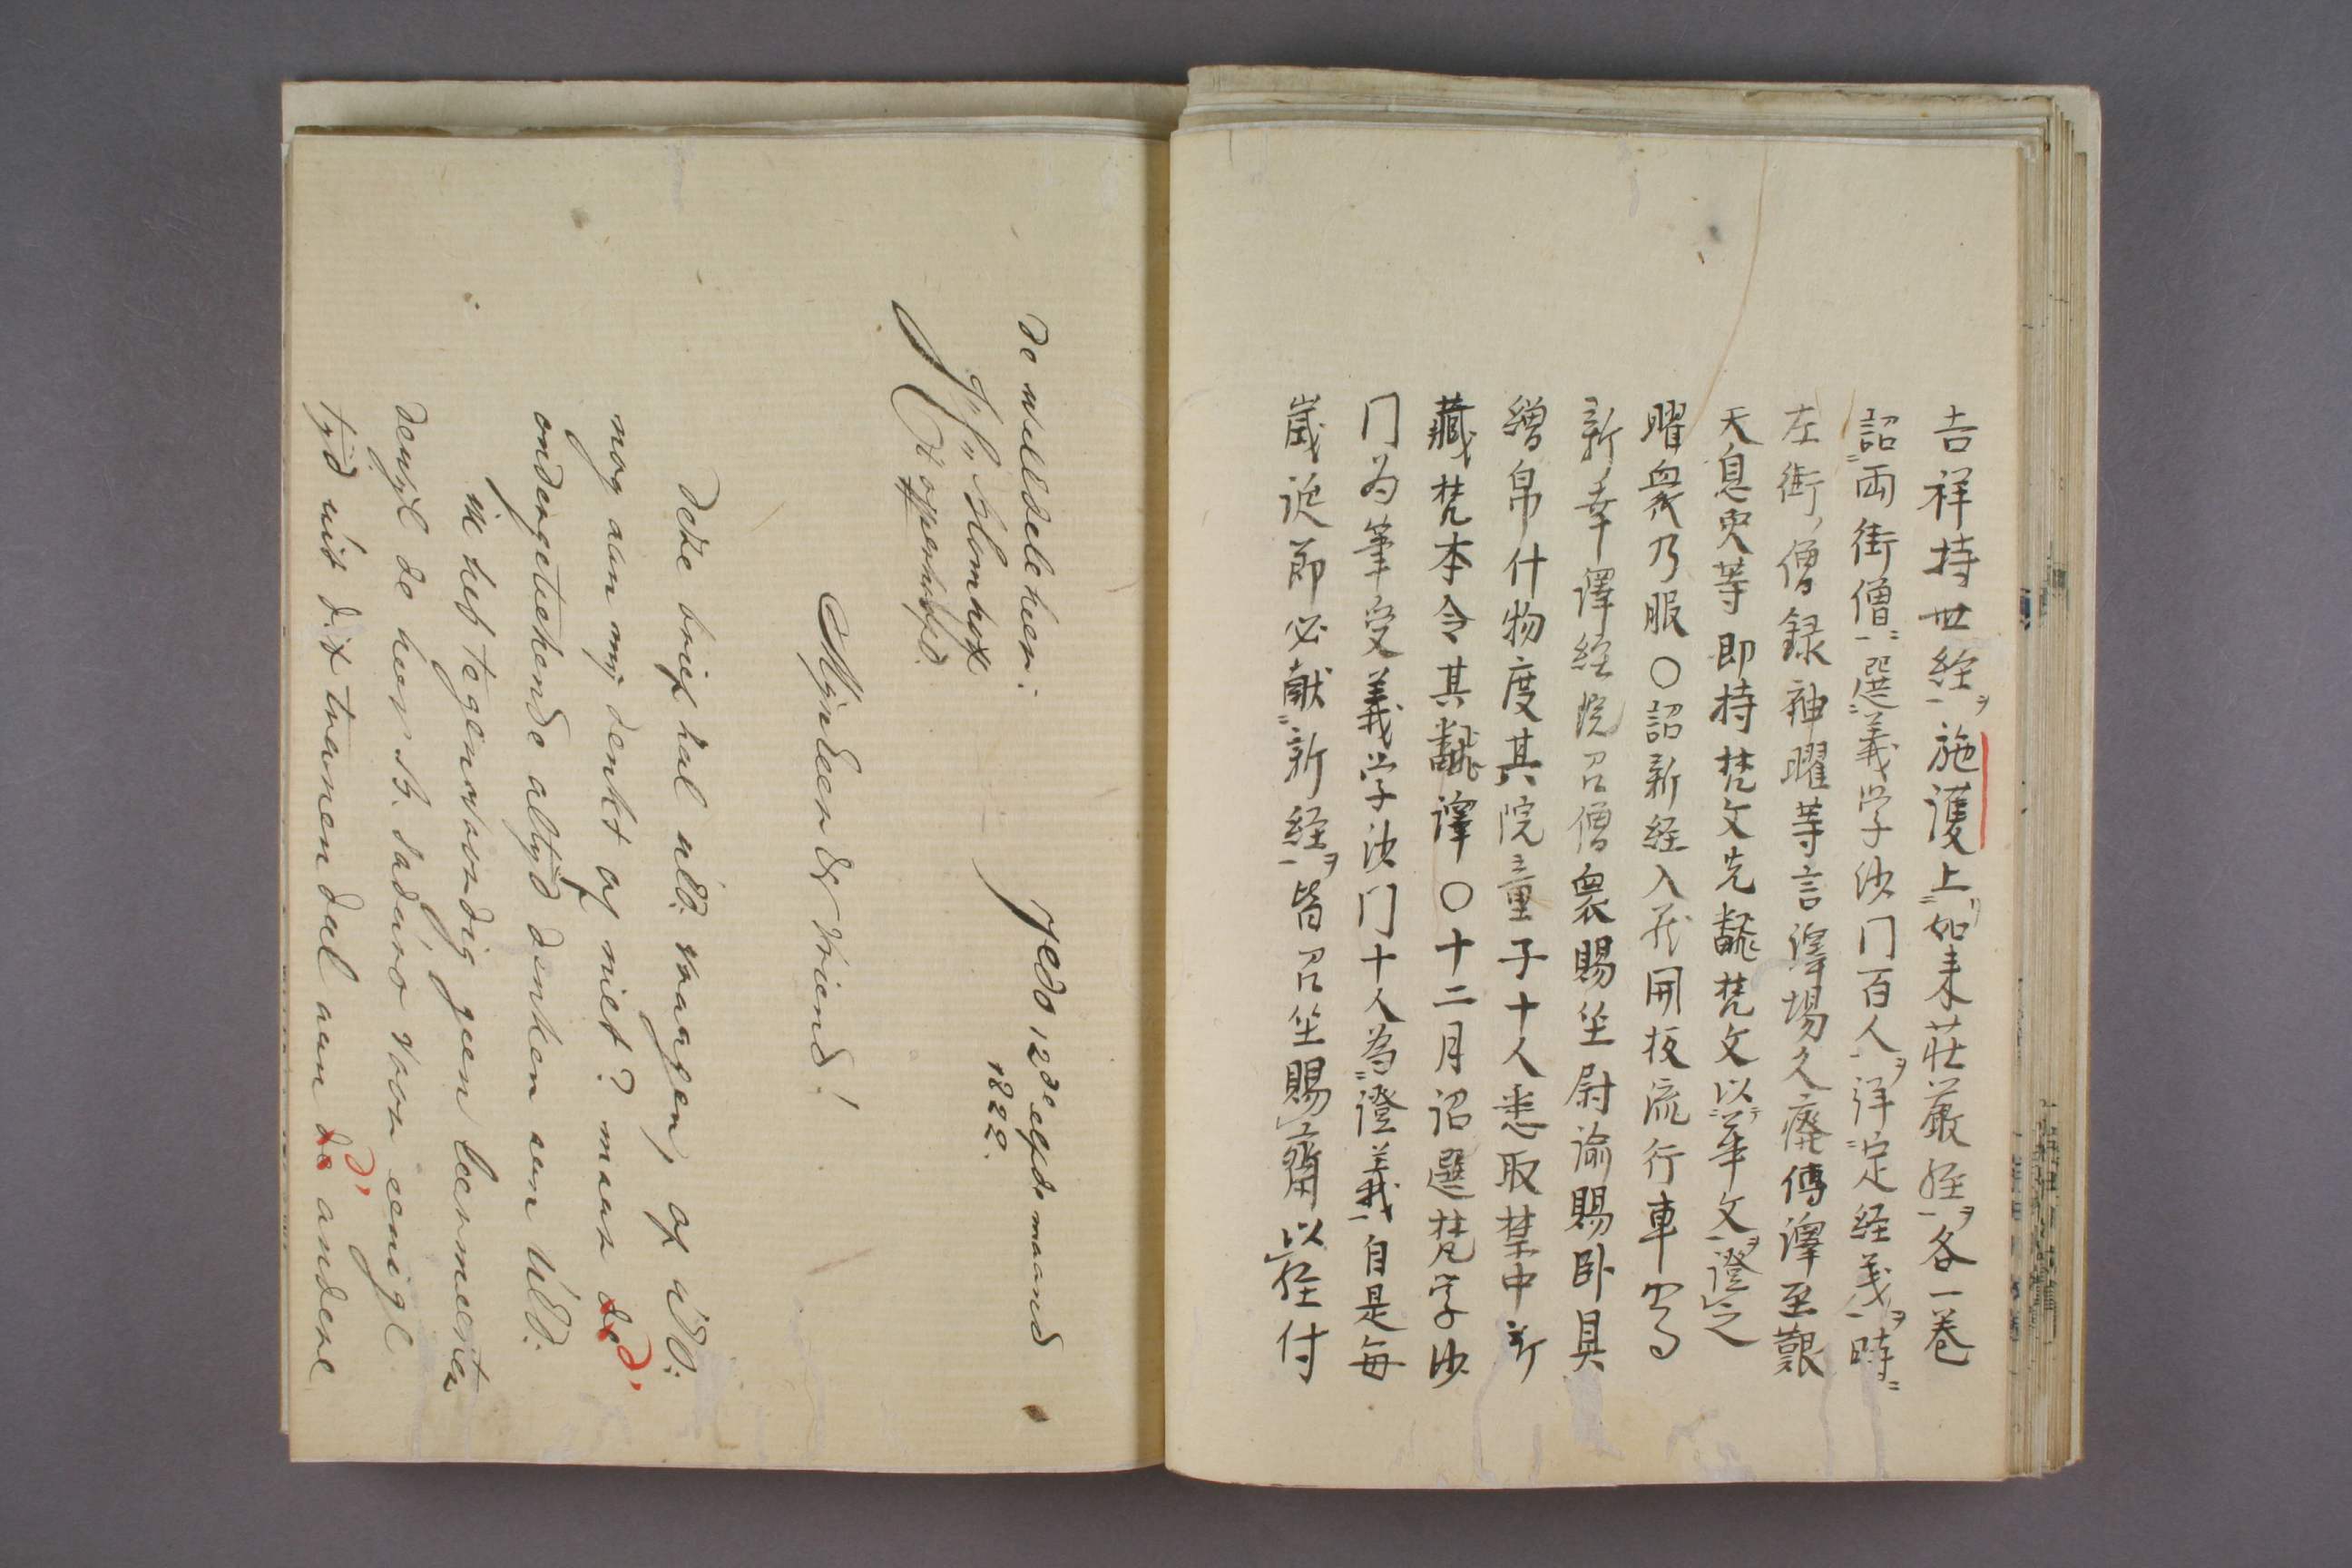 吉祥持世経ヲ施護上如来荘厳経ヲ各一巻
詔両街僧選義学沙门百人ヲ詳定経義ヲ時
左街僧録神曜等言譯場久廃傳譯至艱
天息灾等即持梵文先飜梵文以華文ヲ證之
曜衆乃服〇詔新経入蔵開板流行車駕
新幸譯経院召僧衆賜坐慰諭賜卧具
繒帛什物度其院童子十人悉取禁中所
藏梵本令其飜譯〇十二月詔選梵学沙
门为筆受義学沙门十人為證義自是毎
歳誕節必献新経ヲ皆召坐賜齋以経付
Jedo 12de elfde maand
1822.
De weledele heer:
J: C: Blomhoff
opperhoofd.
Mijn Heer & vriend!
Deze brief zal UEd. vraagen, of UEd:
nog aan mij denkt of niet? maar de d'
ondergetekende altijd denken aen UEd:
ik heb tegenwoordig geen leermeester
dewijl de heer B. Sadajiro voor eenige
tijd uit dit tranendal aan de d' andere